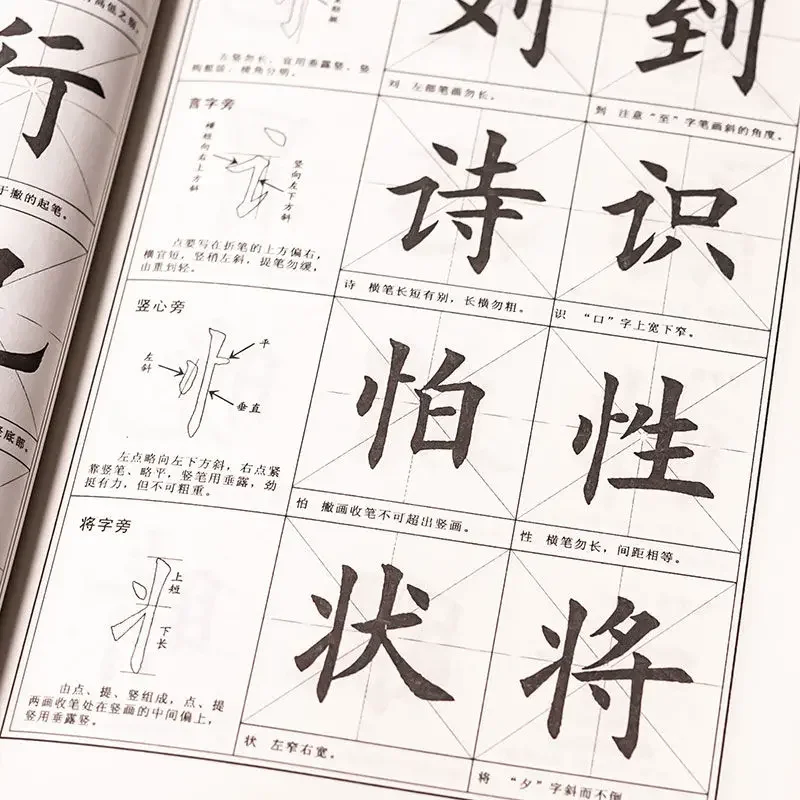 行
于撇的起笔。
左竖勿长，宜用垂露竖，竖
刘
到
刘 左部笔画勿长。
到 注意“至”字笔画斜的角度。
言字旁
横短向右上方斜
竖向左下方斜
点要写在折笔的上方偏右，
横宜短，竖稍左斜，提笔勿缓，
由重到轻。
诗
识
诗 横笔长短有别，长横勿粗。
识 “口”字上宽下窄。
竖心旁
左斜
平
垂直
左点略向左下方斜，右点紧
靠竖笔、略平，竖笔用垂露，劲
挺有力，但不可粗重。
怕
性
怕 撇画收笔不可超出竖画。
性 横笔勿长，间距相等。
将字旁
上短
下长
由点、提、竖组成，点、提
两画收笔处在竖画的中间偏上，
竖用垂露竖。
状
将
状 左窄右宽。
将 “夕”字斜而不倒